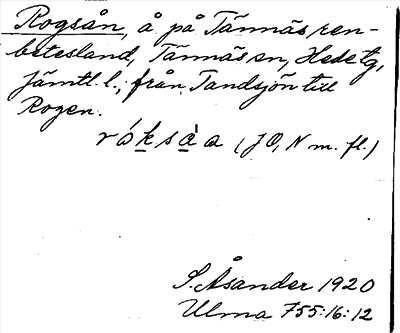 Rogsån, å på Tännäs ren-
betesland, Tännäs sn, Hede tg,
Jämtl. l., från Tandsjön till
Rogen.
róksàa (JO, N m. fl.)
S. Åsander 1920
Ulma 755:16:12